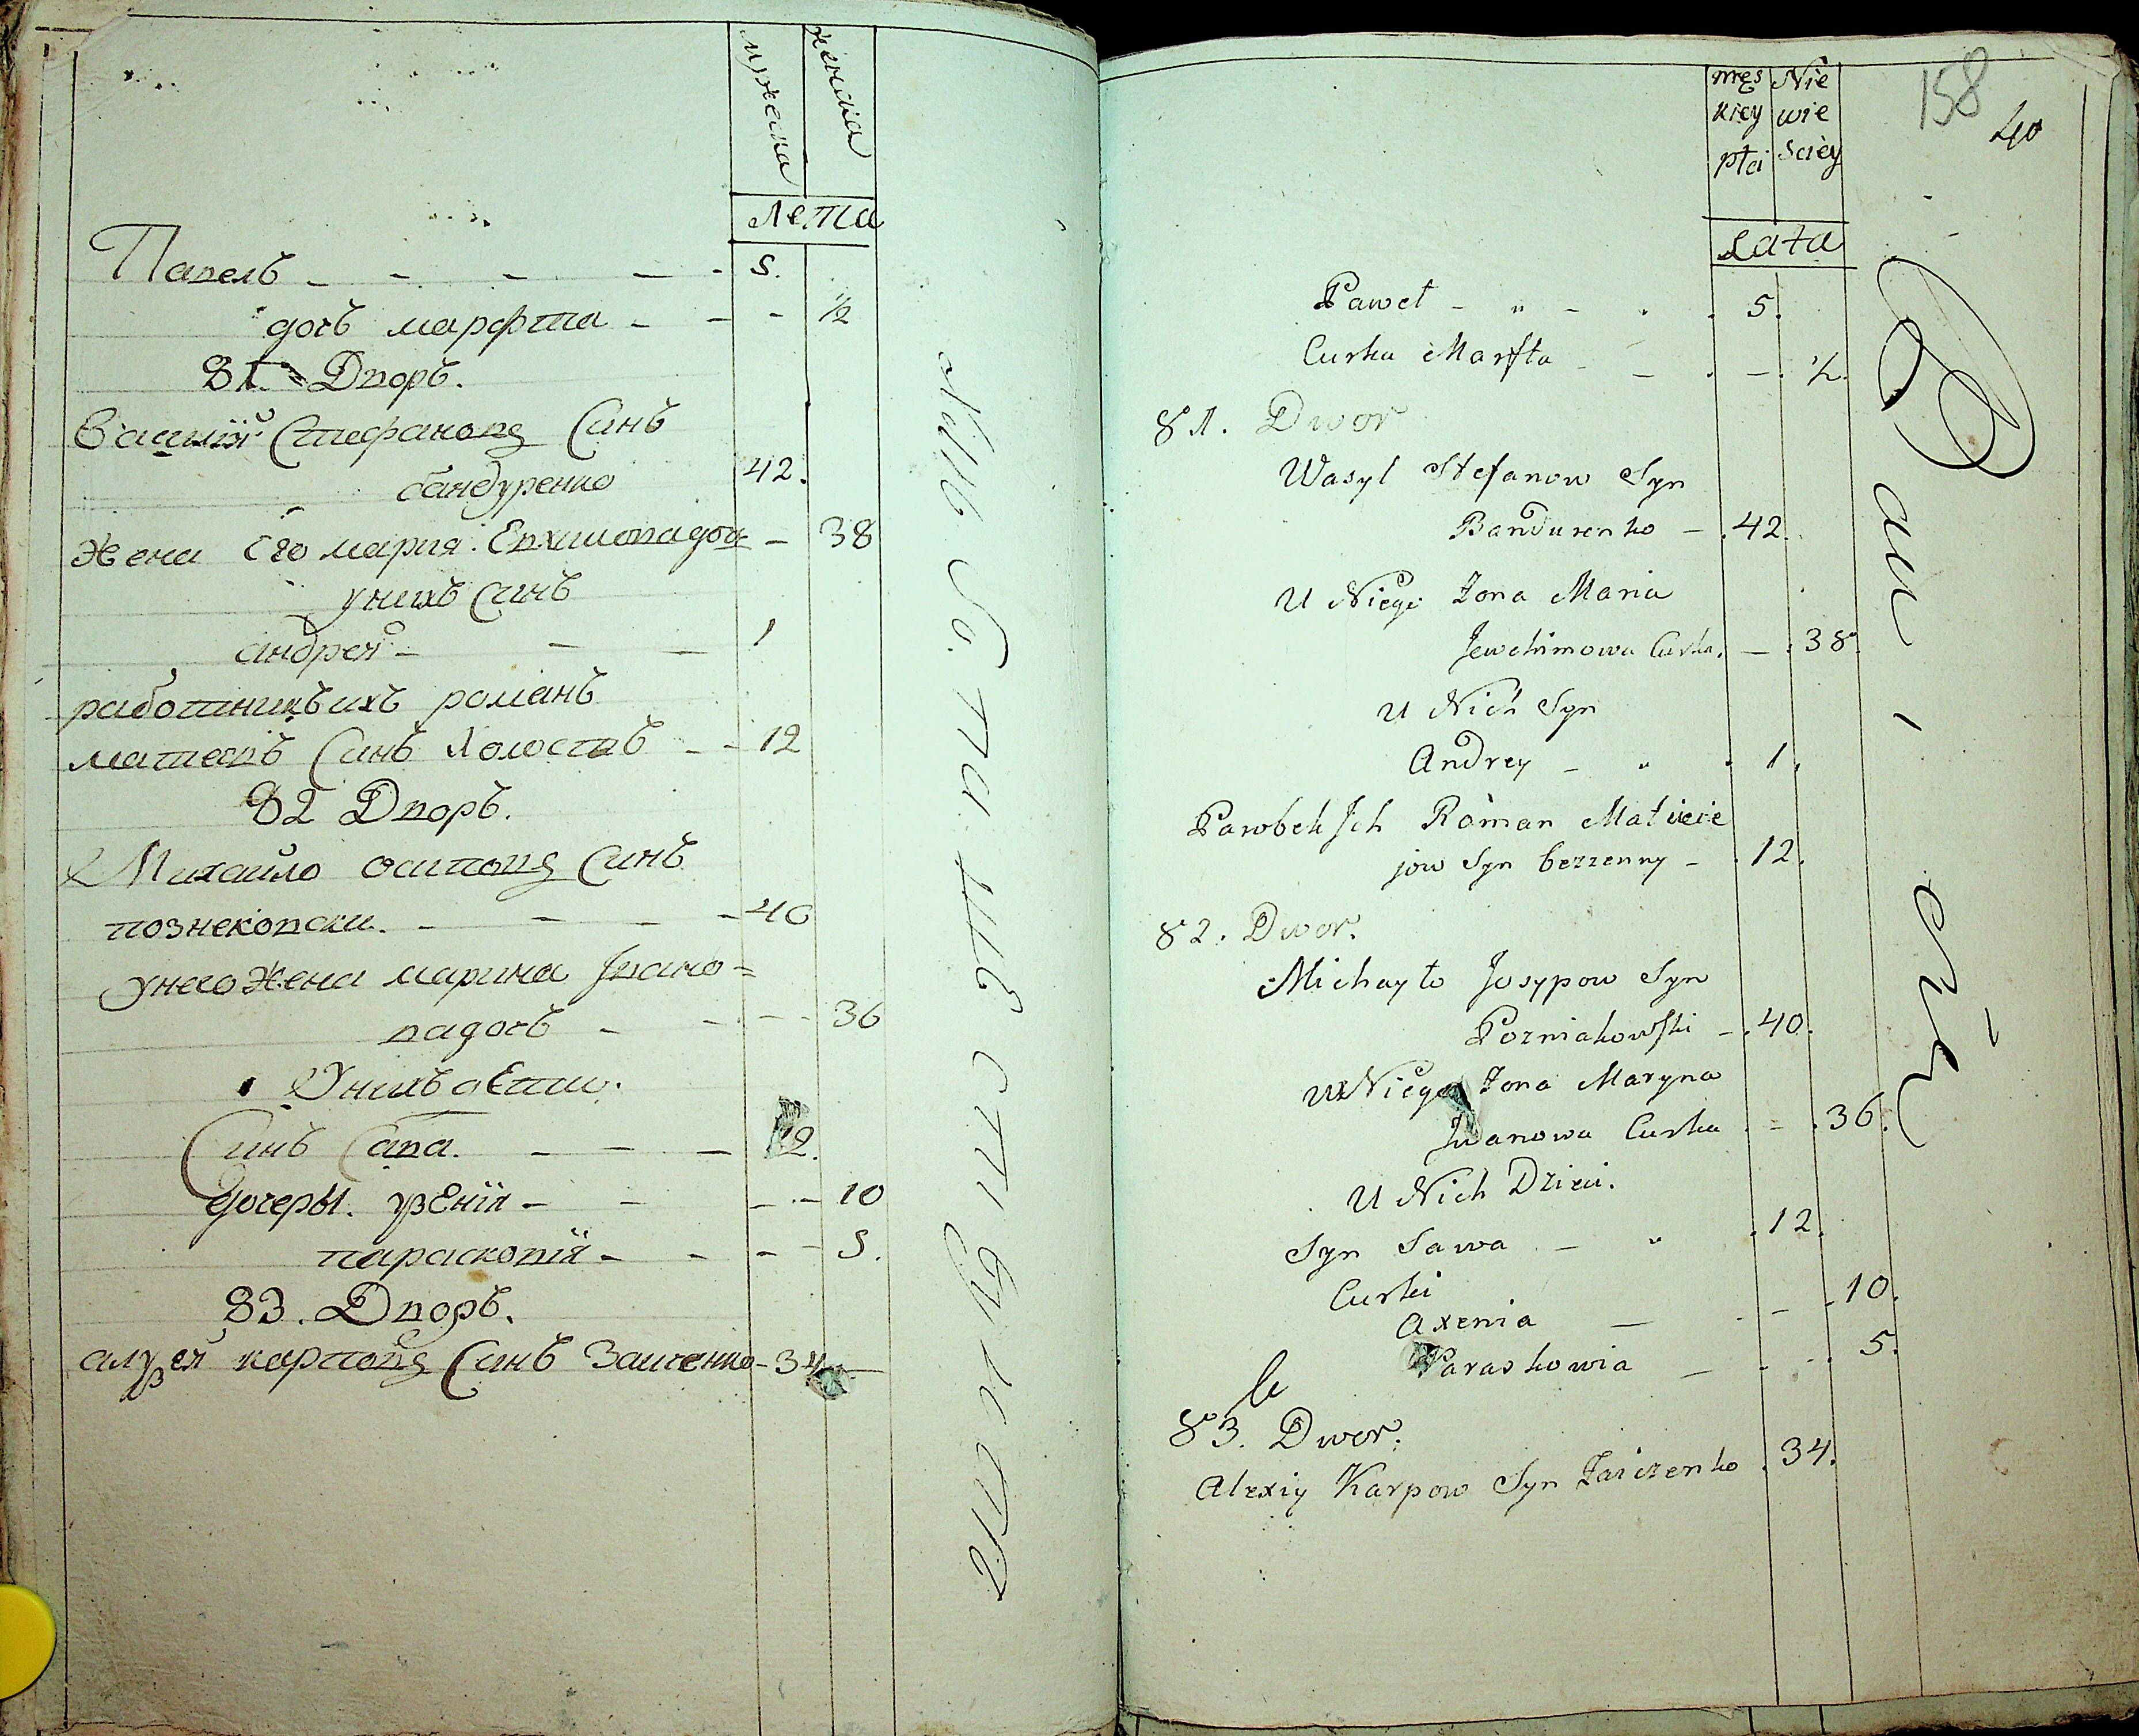 мужеска
женска
лета
Павелъ - - - - - 5.
дочь марфта - - - ½
81. Дворъ.
Василий Стефановъ Синъ
бандуренко 42.
Жена Его мария Евхимовадочъ - 38
унихъ Синъ
андрей - - - 1
работникъ ихъ романъ
матвевъ Синъ Холостъ - - 12
82 Дворъ.
Михайло осиповъ Синъ
познековски. - - - - 40
унего Жена марина Івано=
вадочъ - - - - 36
Унихъ дЕти.
Синъ Сава. - - - 12.
дочеры. ѯЕнїя - - - - 10
парасковїя - - - - 5.
83. Дворъ.
алѯей карповъ Синъ Заиченко - 34 -
męs Nie
kiey wie
płci Sciey
Lata
158
40
Paweł - " - . . 5.
Curka Marfta - - . - . ½.
81. Dwor
Wasyl Stefanow Syn
Bandurenko - .42.
U Niego Zona Maria
Jewchimowa Curka. - . 38.
U Nich Syn
Andrey - " . 1.
Parobek Jch Roman Matwie
jow Syn bezzenny - . 12.
82. Dwor.
Michayło Josypow Syn
Pozniakowski - . 40.
U Niego Zona Maryna
Jwanowa Curka . - . 36.
U Nich Dzieci.
Syn Sawa - " . 12.
Curki
Axenia - . - . 10.
Paraskowia - . - . 5.
83. Dwor.
Alexiy Karpow Syn Zaiczenko . 34.